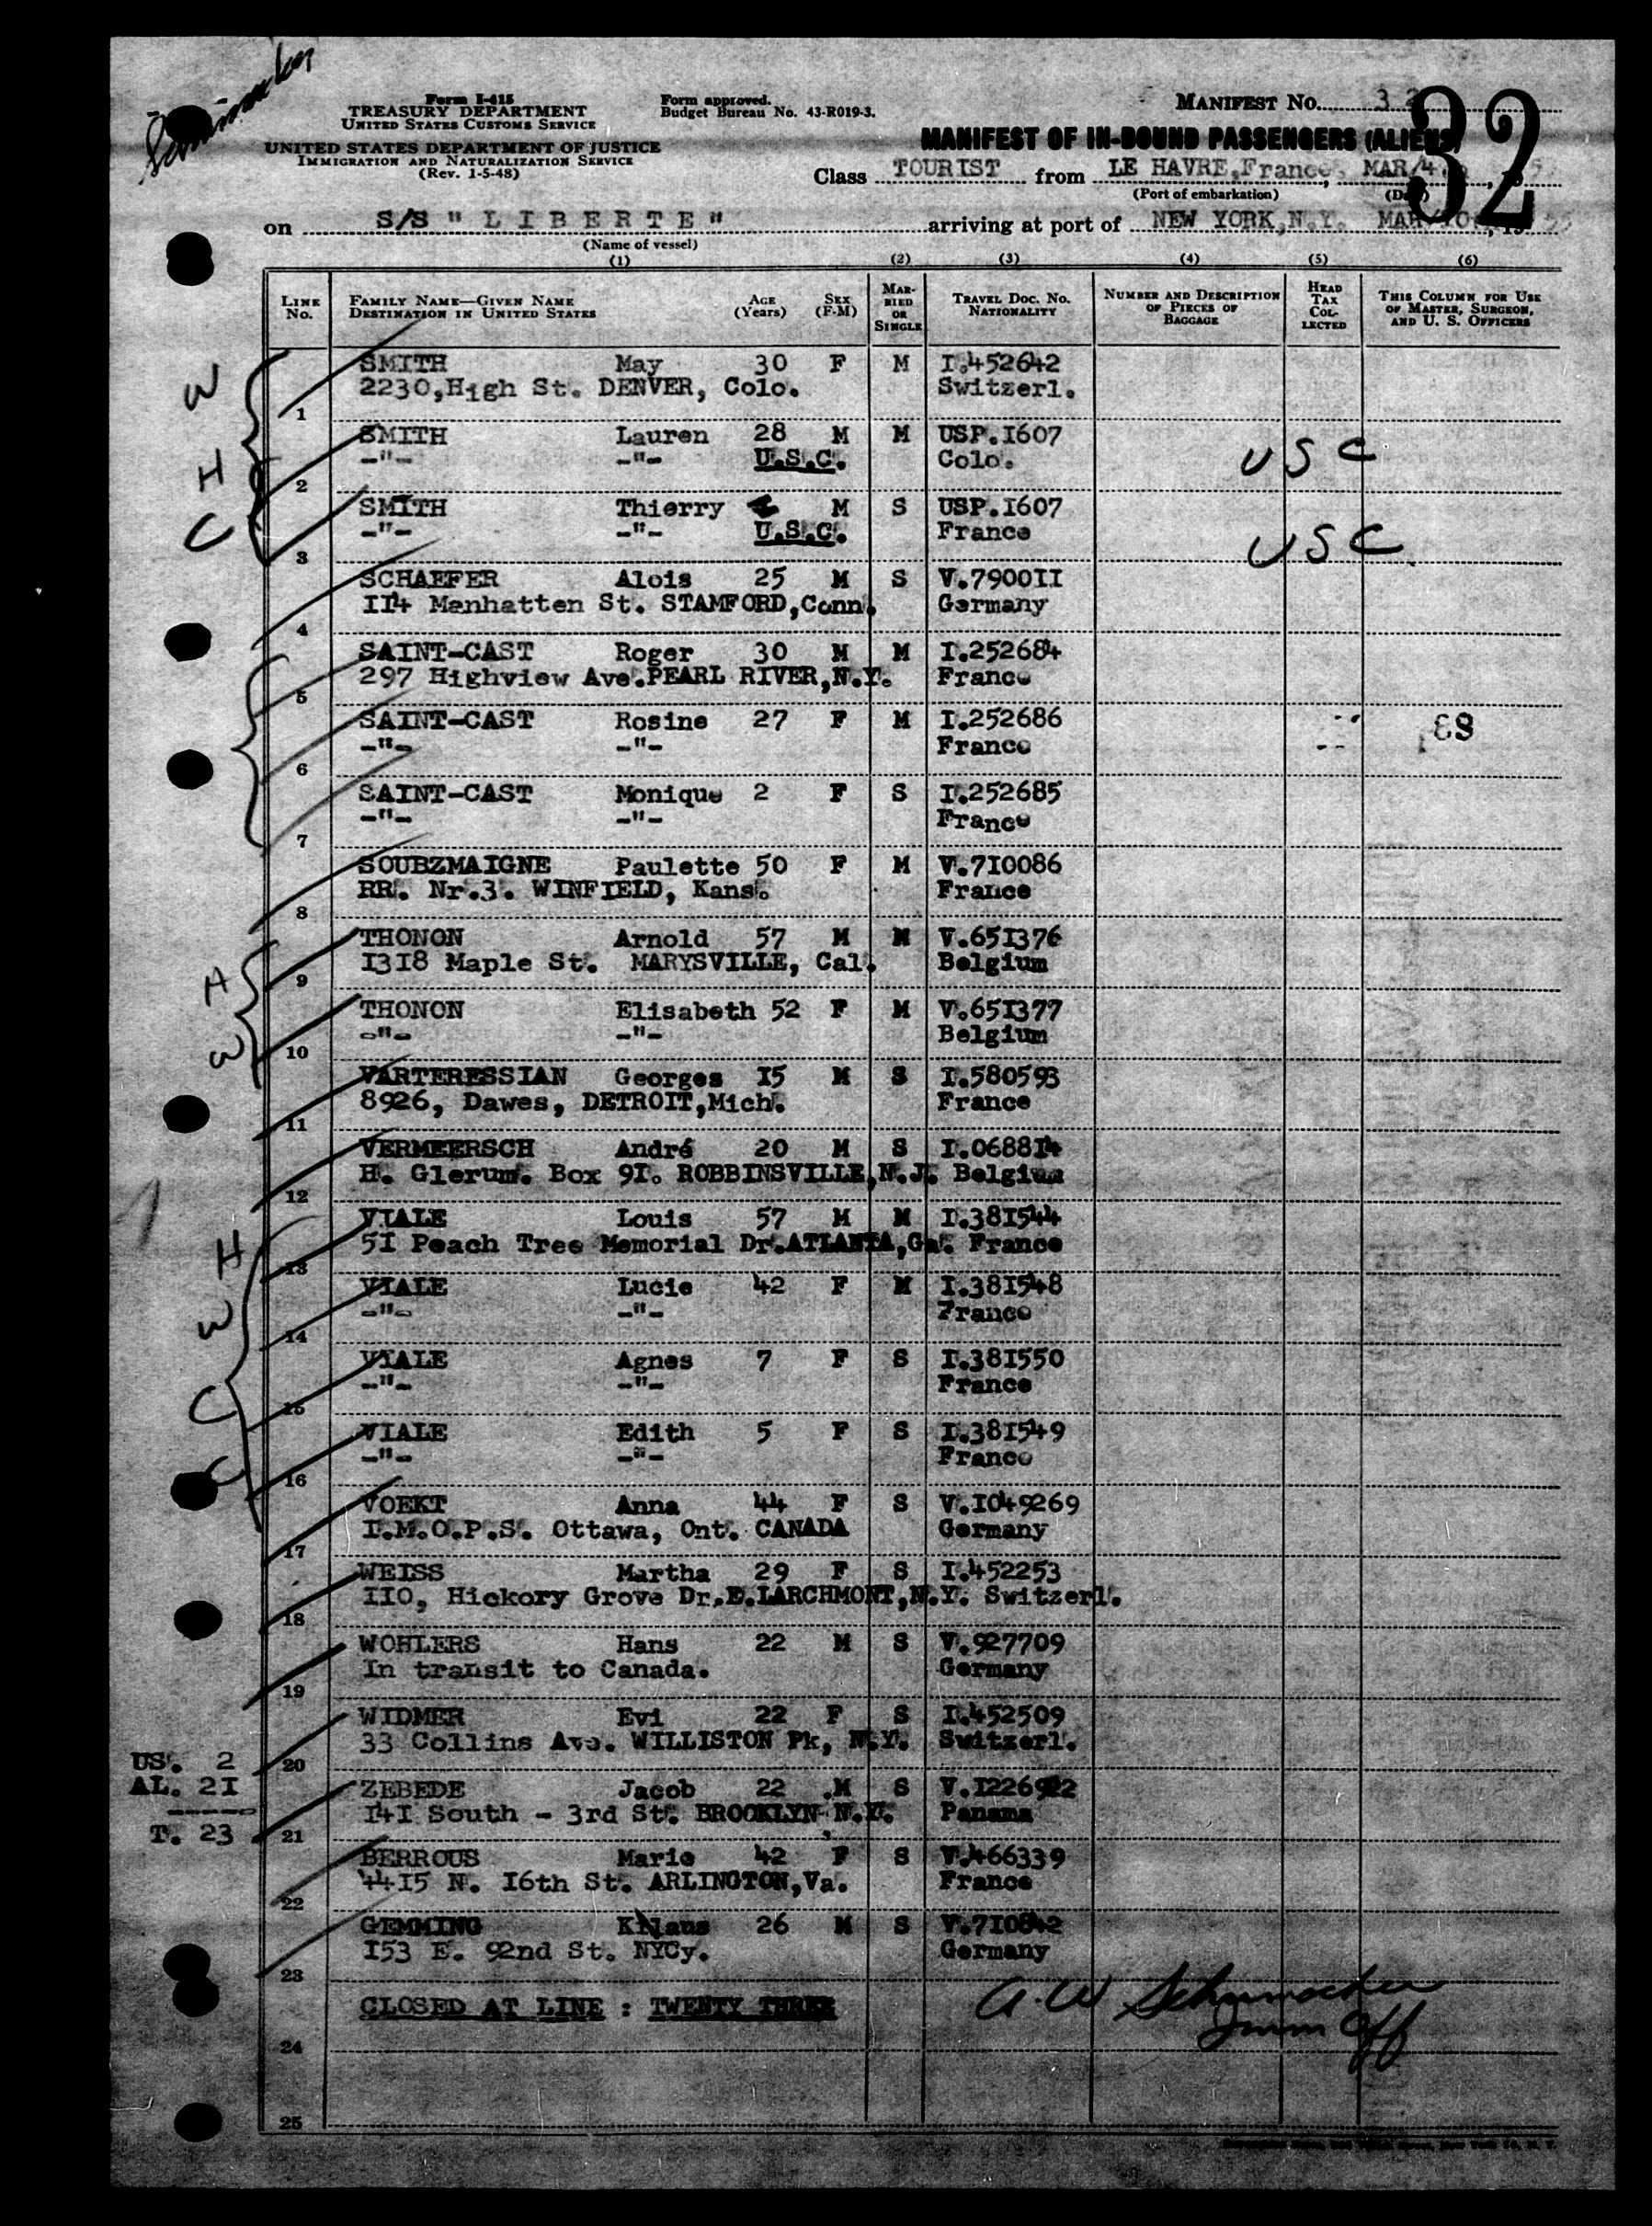 Form I-415
TREASURY DEPARTMENT
UNITED STATES CUSTOMS SERVICE
UNITED STATES DEPARTMENT OF JUSTICE
IMMIGRATION AND NATURALIZATION SERVICE
(Rev. 1-5-48)
Form approved.
Budget Bureau No. 43-R019-3.
MANIFEST No. 32
32
MANIFEST OF IN-BOUND PASSENGERS (ALIENS)
Class TOURIST from LE HAVRE, France, MAR/4
(Port of embarkation) (Date)
on S/S " L I B E R T E " arriving at port of NEW YORK, N.Y. MAR/10, 1955
(Name of vessel)
(1) (2) (3) (4) (5) (6)
LINE No. FAMILY NAME—GIVEN NAME DESTINATION IN UNITED STATES AGE (Years) SEX (F-M) MARRIED OR SINGLE TRAVEL DOC. No. NATIONALITY NUMBER AND DESCRIPTION OF PIECES OF BAGGAGE HEAD TAX COLLECTED THIS COLUMN FOR USE OF MASTER, SURGEON, AND U. S. OFFICERS
W SMITH May 30 F M I.452642
2230,High St. DENVER, Colo. Switzerl.
1
SMITH Lauren 28 M M USP.I607
H -"- -"- U.S.C. Colo. USC
2
C SMITH Thierry M S USP.I607
-"- -"- U.S.C. France USC
3
SCHAEFER Alois 25 M S V.7900II
II4 Manhatten St. STAMFORD,Conn. Germany
4
SAINT-CAST Roger 30 M M I.252684
297 Highview Ave.PEARL RIVER,N.Y. France
5
SAINT-CAST Rosine 27 F M I.252686
-"- -"- France
6
SAINT-CAST Monique 2 F S I.252685
-"- -"- France
7
SOUBZMAIGNE Paulette 50 F M V.7I0086
RR. Nr.3. WINFIELD, Kans. France
8
THONON Arnold 57 M M V.65I376
I3I8 Maple St. MARYSVILLE, Cal. Belgium
H 9
THONON Elisabeth 52 F M V.65I377
-"- -"- Belgium
W 10
VARTERESSIAN Georges I5 M S I.580593
8926, Dawes, DETROIT,Mich. France
11
VERMEERSCH André 20 M S I.0688I4
H. Glerum. Box 9I. ROBBINSVILLE,N.J. Belgium
12
VIALE Louis 57 M M I.38I544
H 5I Peach Tree Memorial Dr.ATLANTA,Ga. France
13
VIALE Lucie 42 F M I.38I548
W -"- -"- France
14
VIALE Agnes 7 F S I.38I550
-"- -"- France
C 15
VIALE Edith 5 F S I.38I549
-"- -"- France
C 16
VOEKT Anna 44 F S V.I049269
I.M.O.P.S. Ottawa, Ont. CANADA Germany
17
WEISS Martha 29 F S I.452253
II0, Hickory Grove Dr.E.LARCHMONT,N.Y. Switzerl.
18
WOHLERS Hans 22 M S V.927709
In transit to Canada. Germany
19
WIDMER Evi 22 F S I.452509
33 Collins Ave. WILLISTON Pk, N.Y. Switzerl.
US. 2 20
AL. 2I ZEBEDE Jacob 22 M S
I4I South - 3rd St. BROOKLYN N.Y. Panama
T. 23 21
BERROUS Marie 42 F S V.466339
44I5 N. I6th St. ARLINGTON,Va. France
22
GEMMING 26 M S V.7I0842
I53 E. 92nd St. NYCy. Germany
23
CLOSED AT LINE : TWENTY THREE
A. W Schumacher
Imm Off
24
25